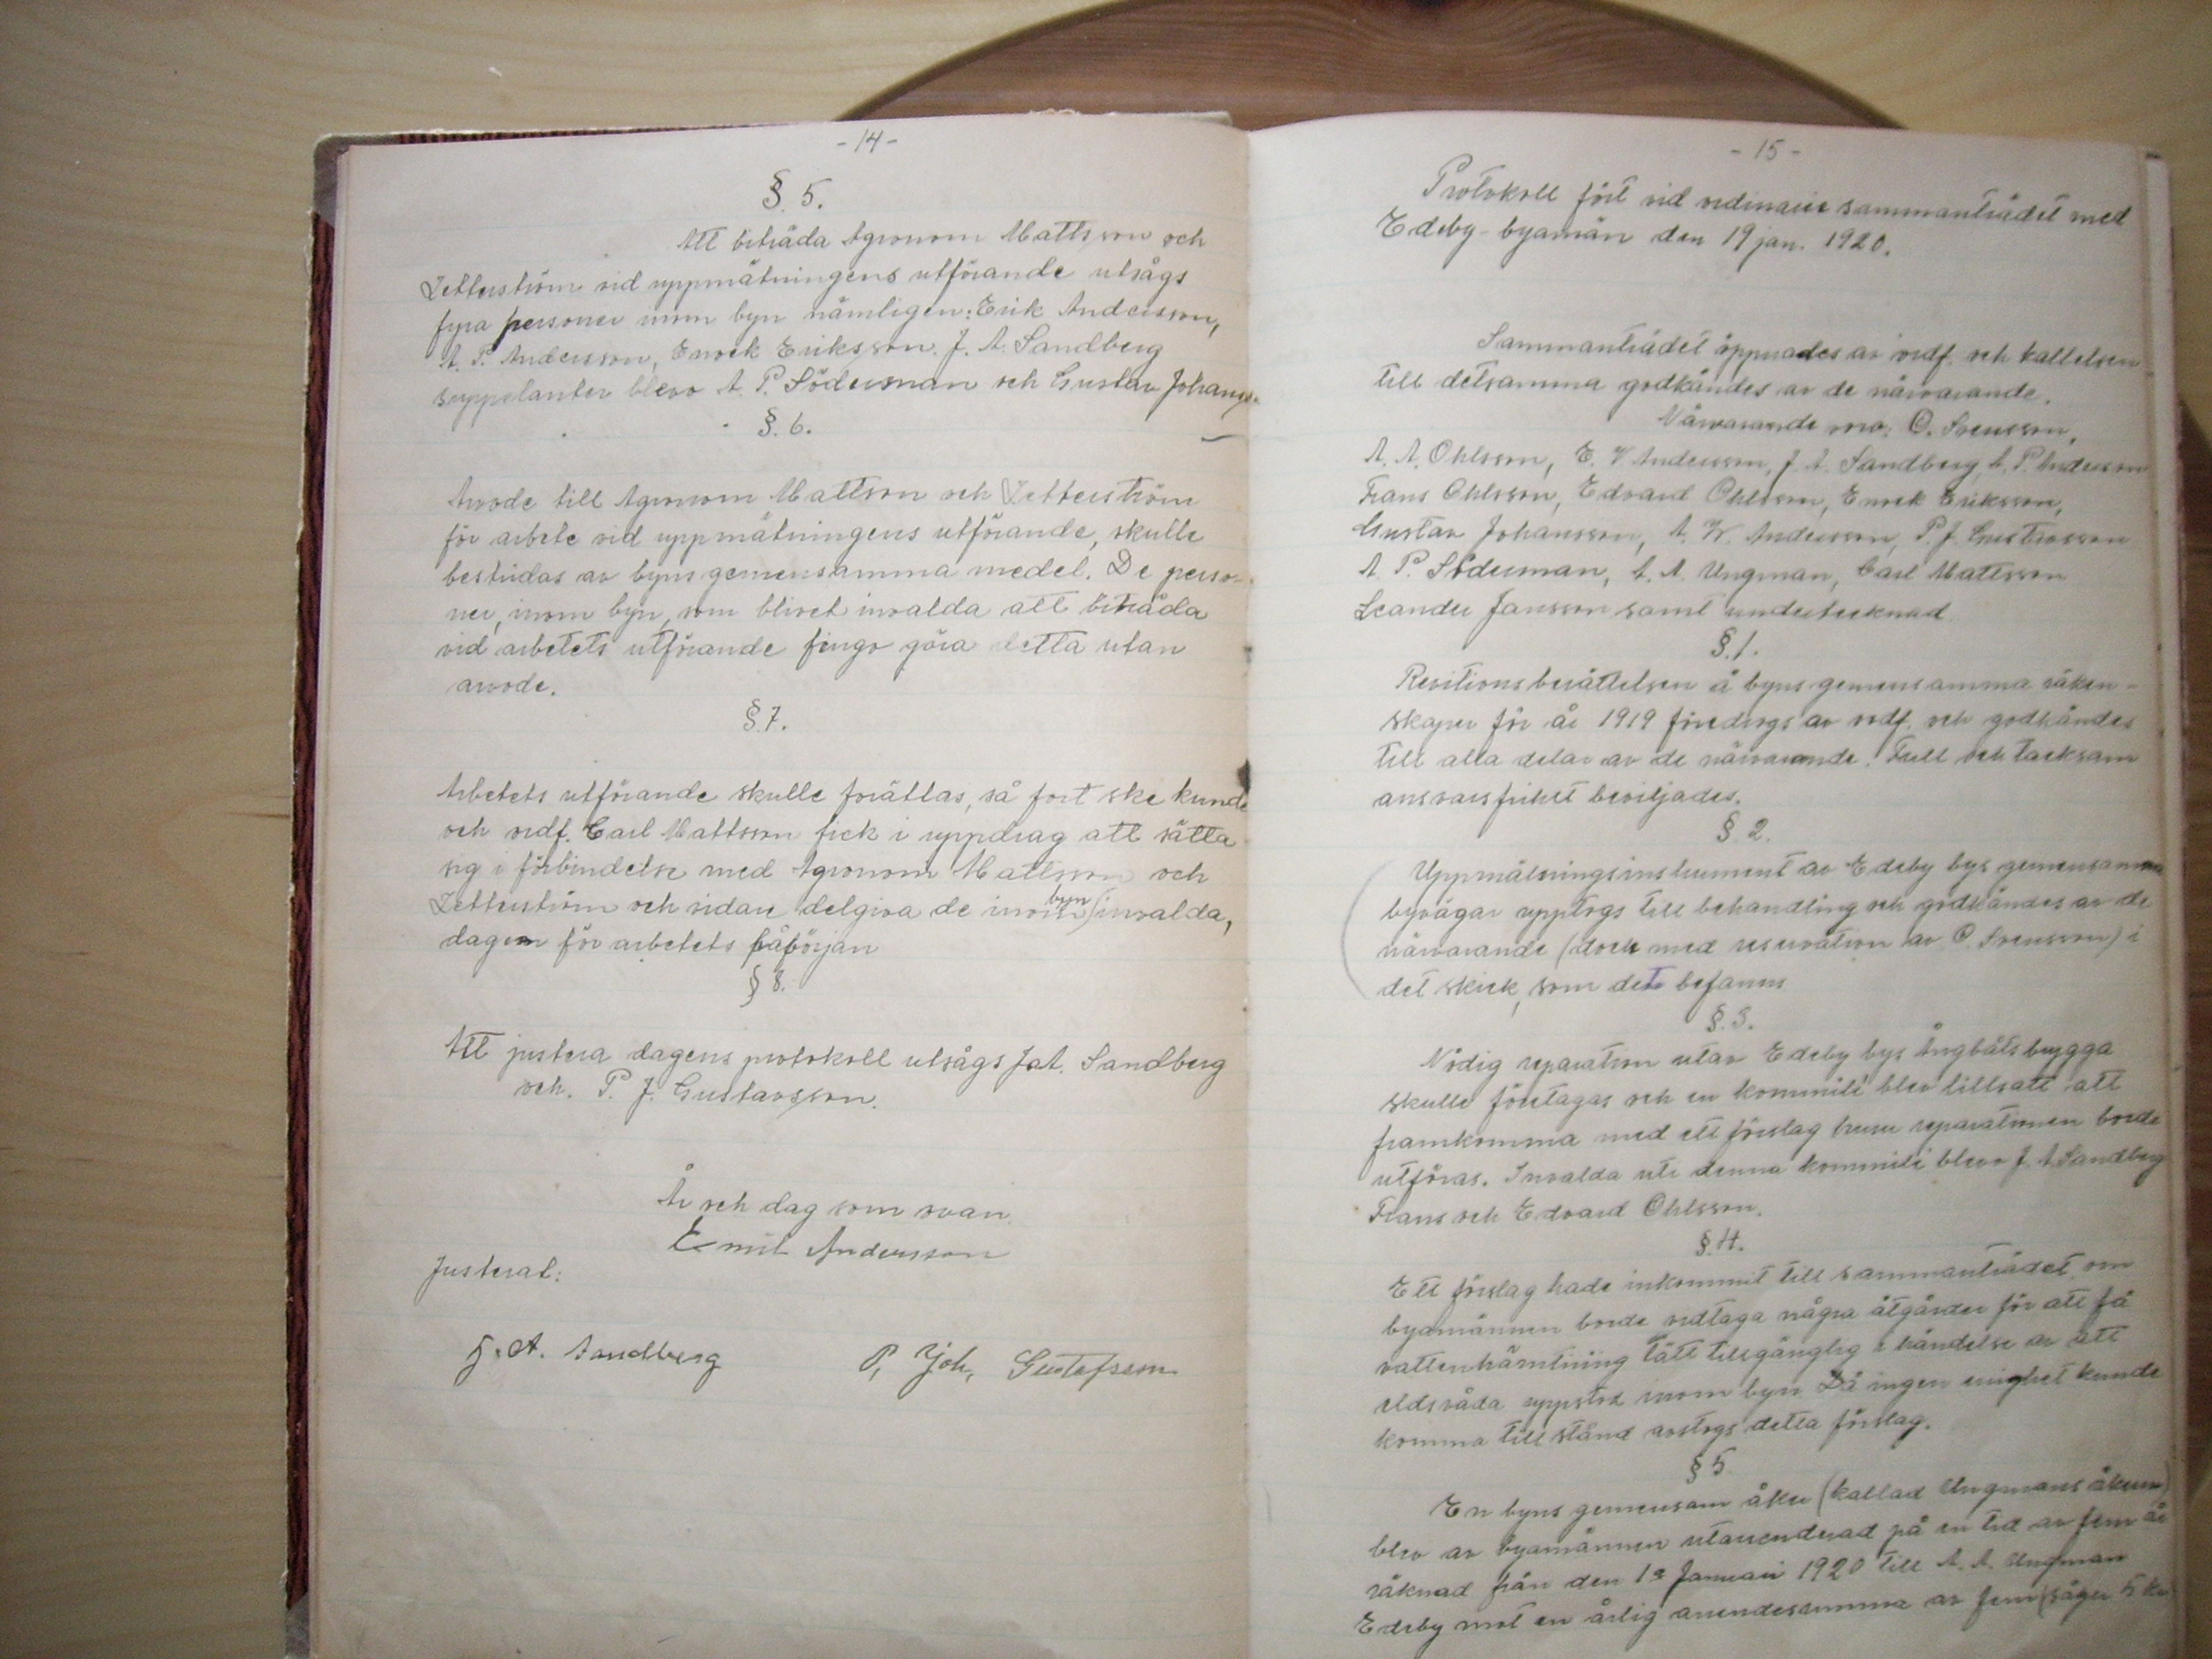 -14-
§. 5.
Att biträda Agronom Mattsson och
Zetterström vid uppmätningens utförande utsågs
fyra personer inom byn nämligen: Erik Andersson,
A. P. Andersson, Enock Eriksson. J. A. Sandberg
suppelanter blevo A. P. Söderman och Gustav Johanss-
§. 6.
Arvode till Agronom Mattson och Zetterström
för arbete vid uppmätningens utförande, skulle
bestridas av byns gemensamma medel. De perso-
ner, inom byn, som blivet invalda att biträda
vid arbetets utförande fingo göra detta utan
arvode.
§. 7.
Arbetets utförande skulle förättas, så fort ske kunde
och ordf. Carl Mattsson fick i uppdrag att sätta
sig i förbindelse med Agronom Mattsson och
Zetterström och sidan delgiva de inom byn invalda,
dagen för arbetets påbörjan
§ 8.
Att justera dagens protokoll utsågs J.A. Sandberg
och. P. J. Gustavsson.
År och dag som ovan
Emil Andersson
Justerat:
J. A. Sandberg P. Joh. Gustafsson
-15-
Protokoll fört vid ordinarie sammanträdet med
Edeby-byamän den 19 jan. 1920.
Sammanträdet öppnades av ordf. och kallelsen
till detsamma godkändes av de närvarande.
Närvarande voro: O. Svensson,
A. A. Ohlsson, E. V Andersson, J. A. Sandberg, A. P. Andersson
Frans Ohlsson, Edvard Ohlsson, Enock Eriksson,
Gustav Johansson, A. W. Andersson, P. J. Gustavsson
A. P. Söderman, A. A. Ungman, Carl Mattsson
Leander Jansson samt undertecknad
§. 1.
Revitionsberättelsen å byns gemensamma räken-
skaper för år 1919 föredrogs av ordf. och godkändes
till alla delar av de närvarande. Full och tacksam
ansvarsfrihet beviljades.
§. 2.
Uppmätningsinstrument av Edeby bys gemensamma
byvägar upptogs till behandling och godkändes av de
närvarande (dock med reservation av O. Svensson) i
det skick, som det befanns
§. 3.
Nödig reparation utav Edeby bys Ångbåtsbrygga
skulle företagas och en kommité blev tillsatt att
framkomma med ett förslag huru reparationen borde
utföras. Invalda uti denna kommité blevo J. A Sandberg
Frans och Edvard Ohlsson.
§. 4.
Ett förslag hade inkommit till sammanträdet om
byamännen borde vidtaga några åtgärder för att få
vattenhämtning lätt tillgänglig i händelse av att
eldsvåda uppstod inom byn Då ingen enighet kunde
komma till stånd avslogs detta förslag.
§ 5
En byns gemensam åker (kallad Ungmans åkern)
blev av byamännen utarrenderad på en tid av fem år
räknad från den 1a Januari 1920 till A. A. Ungman
Edeby mot en årlig arrendesumma av fem (säger 5 kr